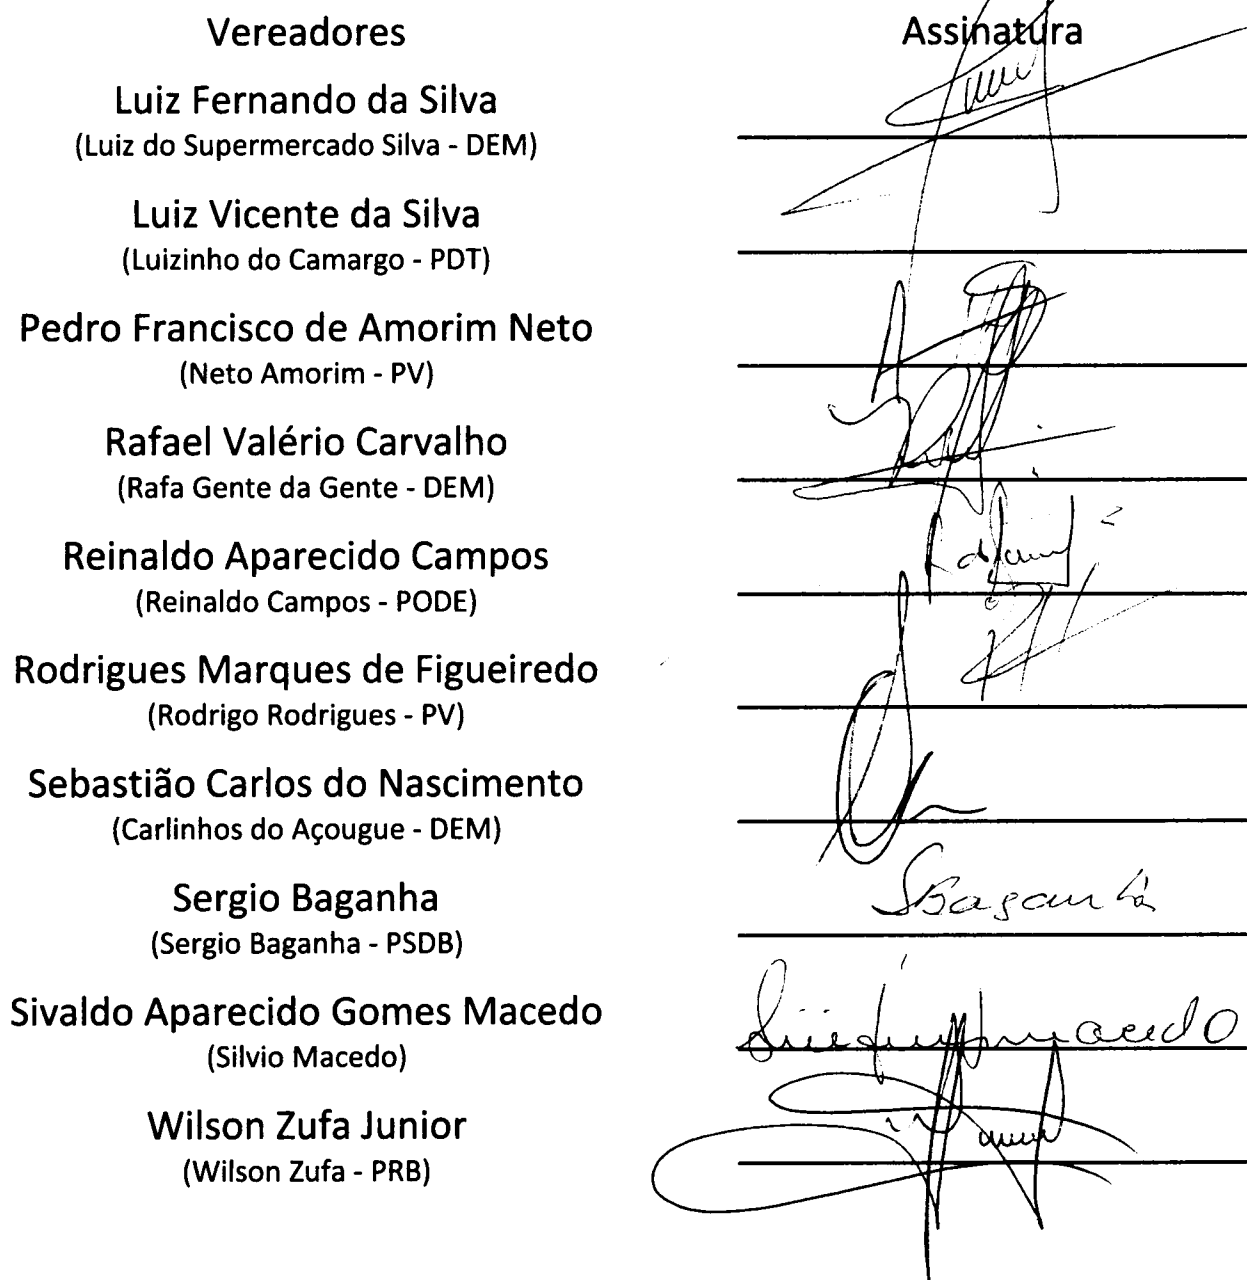 Vereadores Assinatura
Luiz Fernando da Silva
(Luiz do Supermercado Silva - DEM)
Luiz Vicente da Silva
(Luizinho do Camargo - PDT)
Pedro Francisco de Amorim Neto
(Neto Amorim - PV)
Rafael Valério Carvalho
(Rafa Gente da Gente - DEM)
Reinaldo Aparecido Campos
(Reinaldo Campos - PODE)
Rodrigues Marques de Figueiredo
(Rodrigo Rodrigues - PV)
Sebastião Carlos do Nascimento
(Carlinhos do Açougue - DEM)
SBaganha
Sergio Baganha
(Sergio Baganha - PSDB)
Sivaldo Aparecido Gomes Macedo
macedo
(Silvio Macedo)
Wilson Zufa Junior
(Wilson Zufa - PRB)